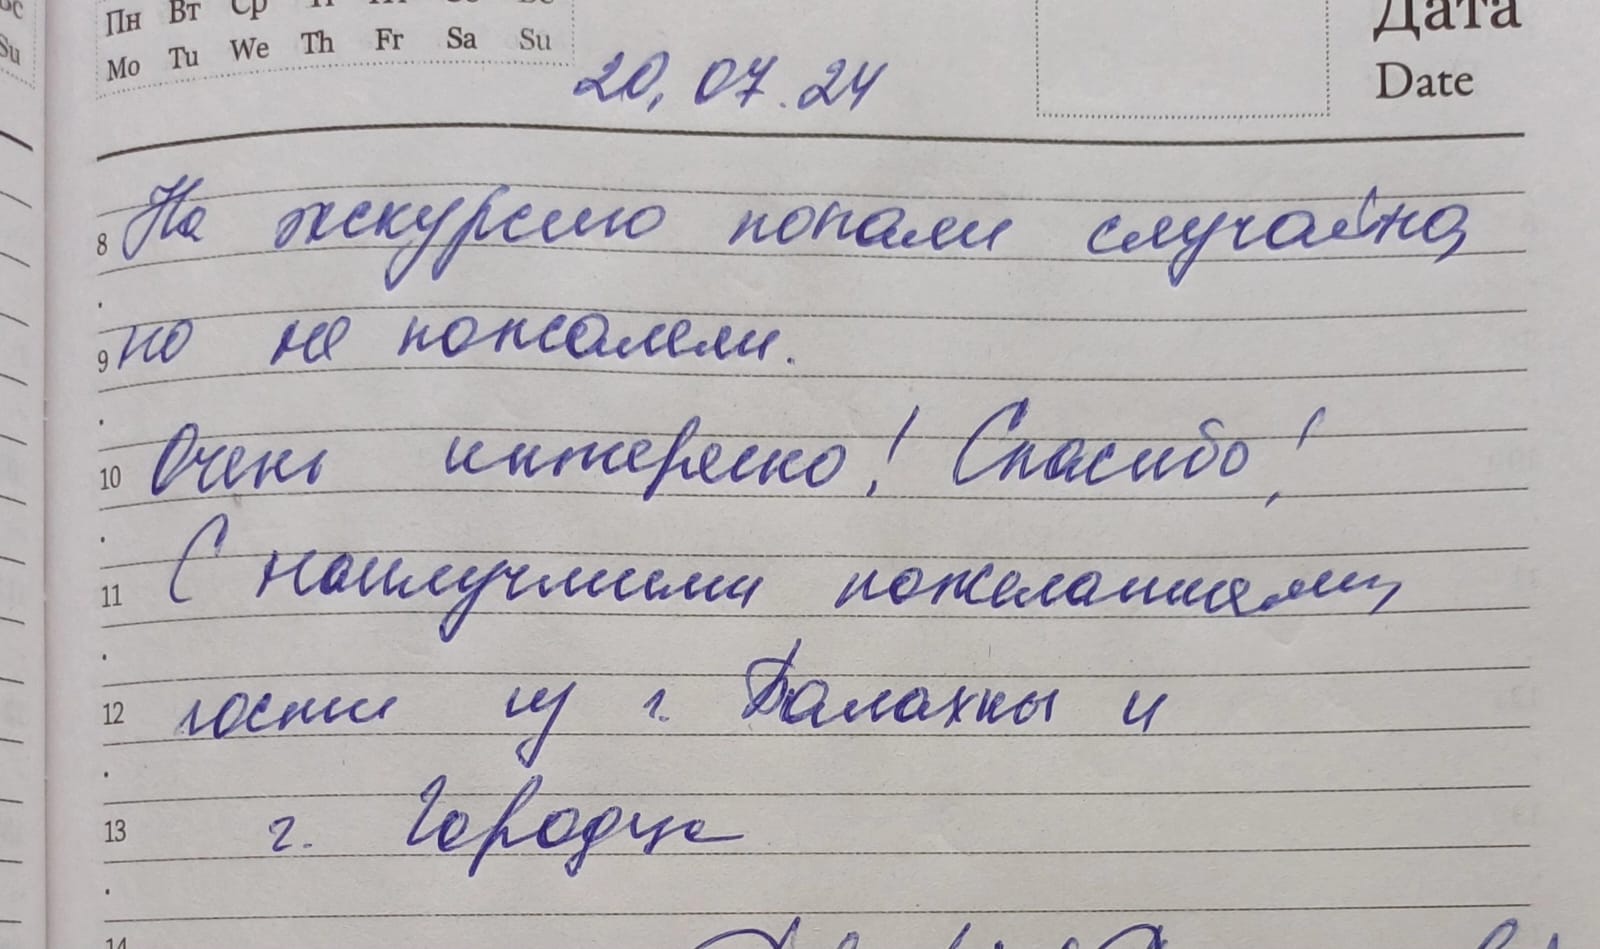 Пн Вт Ср
Mo Tu We Th Fr Sa Su
Su
Дата
Date
20.07.24
8 На экскурсию попали случайно,
9 но не пожалели.
10 Очень интересно! Спасибо!
11 С наилучшими пожеланиями,
12 гости из г. Балахны и
13 г. Городца
14